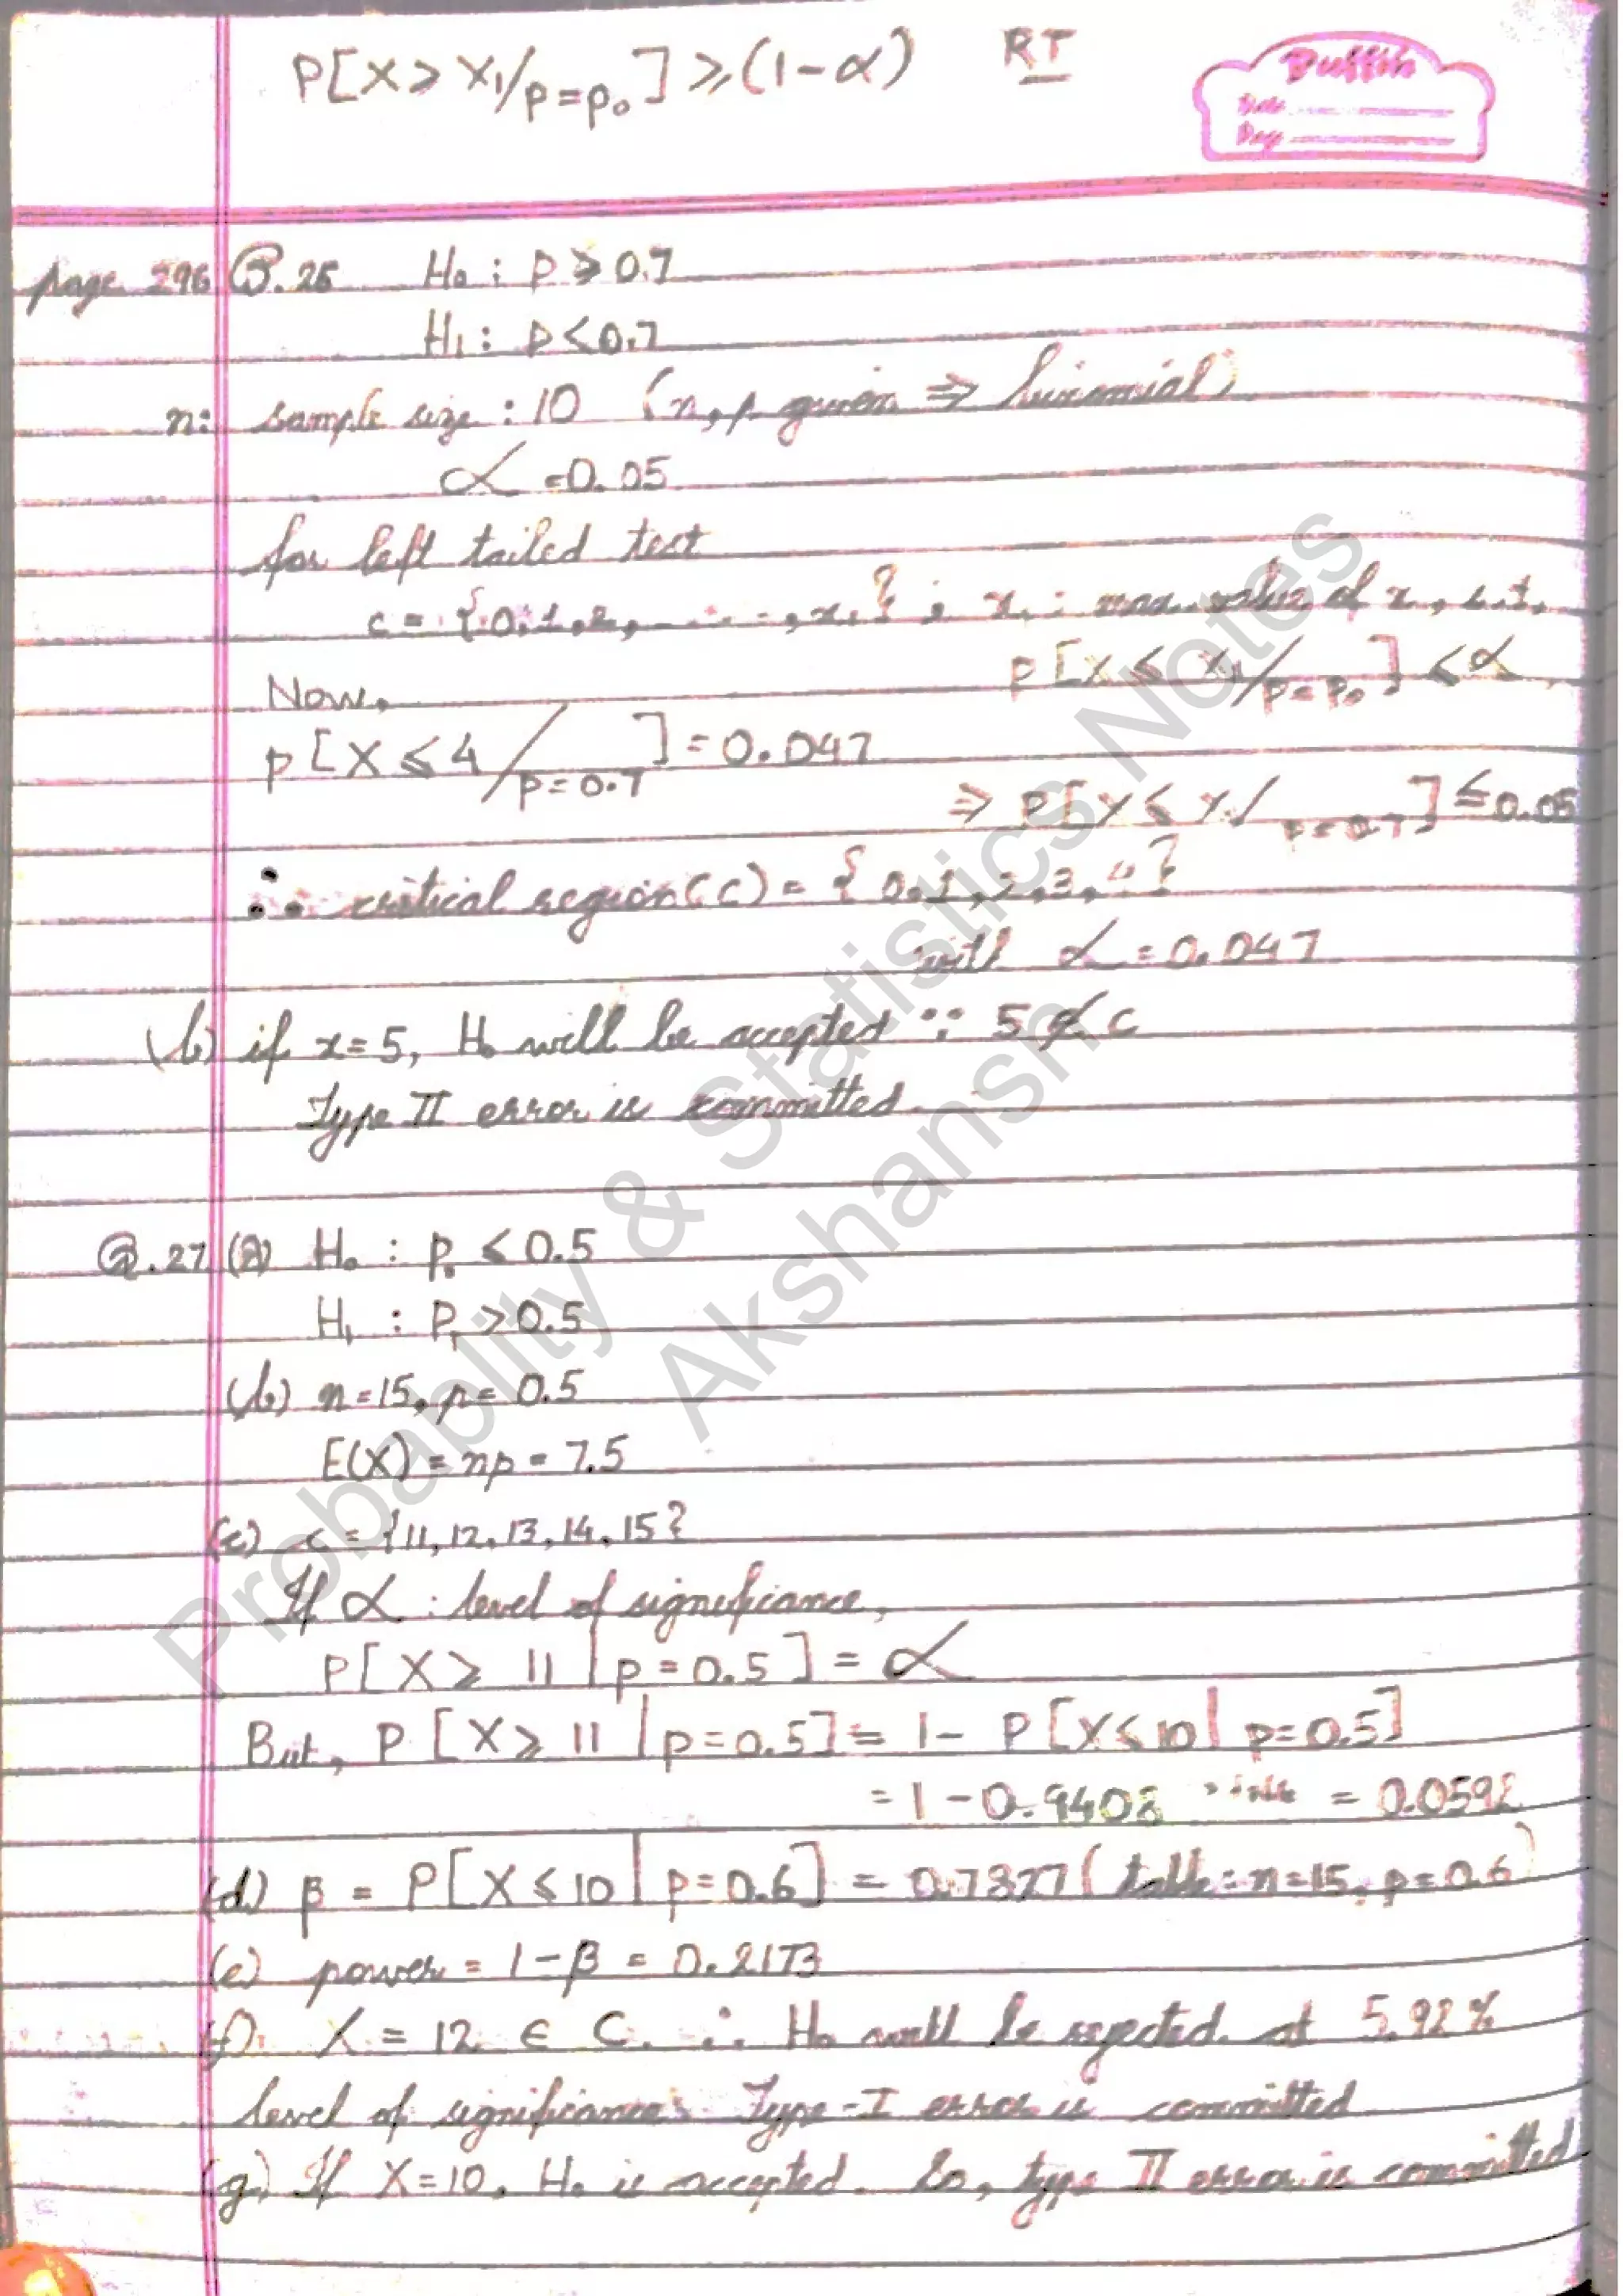 P[X > x₁/p=p₀] ≥ (1-α) RT
Puffin
Date
page 296 Q.25 H₀ : p ≥ 0.7
H₁ : p < 0.7
n: sample size : 10 (n, p given ⇒ binomial)
α = 0.05
for left tailed test
c = {0, 1, 2, ......, x₁} ; x₁ : max. value of x, s.t.
P[X ≤ x₁/p=p₀] < α
Now,
P[X ≤ 4/p=0.7] = 0.047
⇒ P[X ≤ x₁/p=0.7] ≤ 0.05
∴ critical region (c) = {0, 1, 2, 3, 4}
with α = 0.047
(b) if x = 5, H₀ will be accepted ∵ 5 ∉ c
Type II error is committed.
Q.27 (a) H₀ : p₀ ≤ 0.5
H₁ : p₁ > 0.5
(b) n = 15, p = 0.5
E(X) = np = 7.5
(c) c = {11, 12, 13, 14, 15}
If α : level of significance,
P[X ≥ 11 | p = 0.5] = α
But, P[X ≥ 11 | p = 0.5] = 1 - P[X ≤ 10 | p = 0.5]
= 1 - 0.9408 = 0.0592
(d) β = P[X ≤ 10 | p = 0.6] = 0.7827 (table : n = 15, p = 0.6)
(e) power = 1 - β = 0.2173
(f) X = 12 ∈ C. ∴ H₀ will be rejected at 5.92%
level of significance. Type-I error is committed
(g) If X = 10, H₀ is accepted. So, type II error is committed
Probablity & Statistics Notes
Akshansh